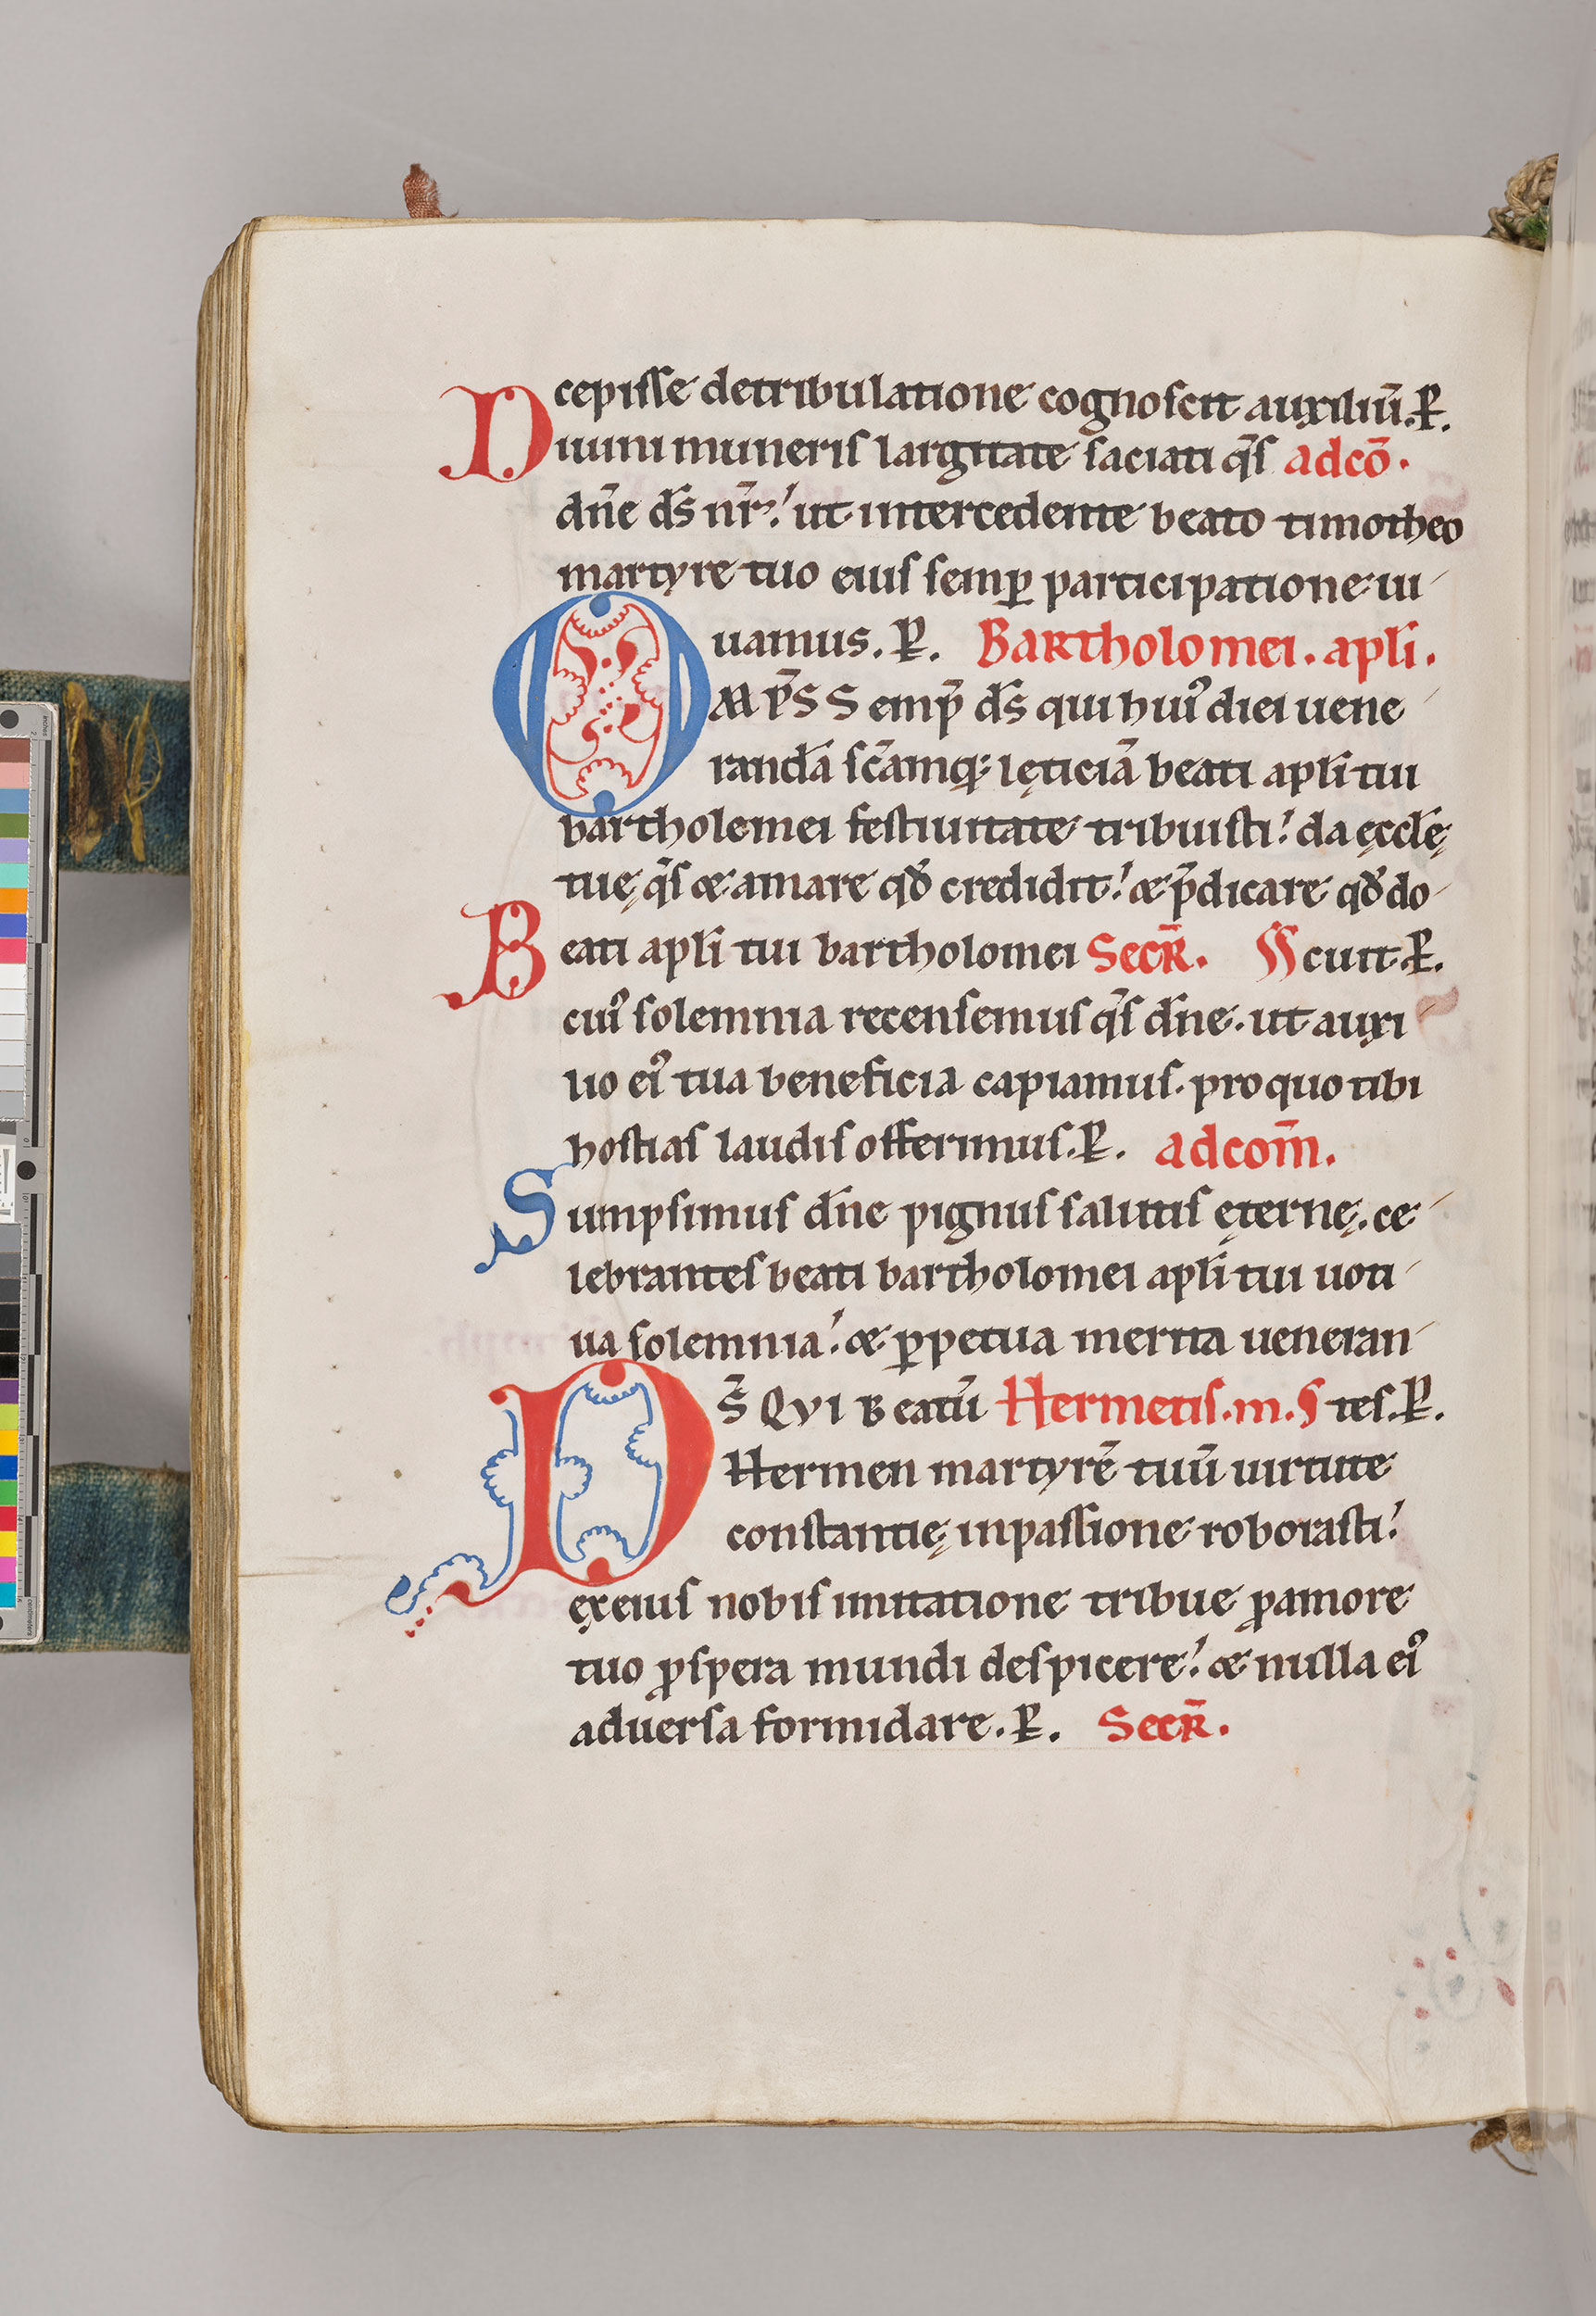 cepisse detribulatione cognoscit auxiliū. P̲.
Diuini muneris largitate saciati q̄s adcō.
dn̄e ds̄ nr̄? ut intercedente beato timotheo
martyre tuo eius semꝑ participatione iu-
uamus. P̲. Bartholomei. apl̄i.
OMP̄S Semp̄ ds̄ qui huiꝰ diei uene-
randā sc̄amq; lęticiā beati apl̄i tui
bartholomei festiuitate tribuisti? da ęccl̄ę
tuę q̄s & amare qd̄ credidit? & p̄dicare qd̄ do-
Beati apl̄i tui bartholomei Secr̄. cuit. P̲.
cuiꝰ solemnia recensemus q̄s dn̄e. ut auxi-
lio eiꝰ tua beneficia capiamus. pro quo tibi
hostias laudis offerimus. P̲. adcom̄.
Sumpsimus dn̄e pignus salutis ęternę. ce-
lebrantes beati bartholomei apl̄i tui uoti-
ua solemnia? & ꝑpetua merita ueneran-
DS̄ QVI Beatū Hermetis. m. tes. P̲.
Hermen martyrē tuū uirtute
constantię inpassione roborasti?
ex eius nobis imitatione tribue ꝓ amore
tuo ꝓspera mundi despicere? & nulla eiꝰ
aduersa formidare. P̲. Secr̄.